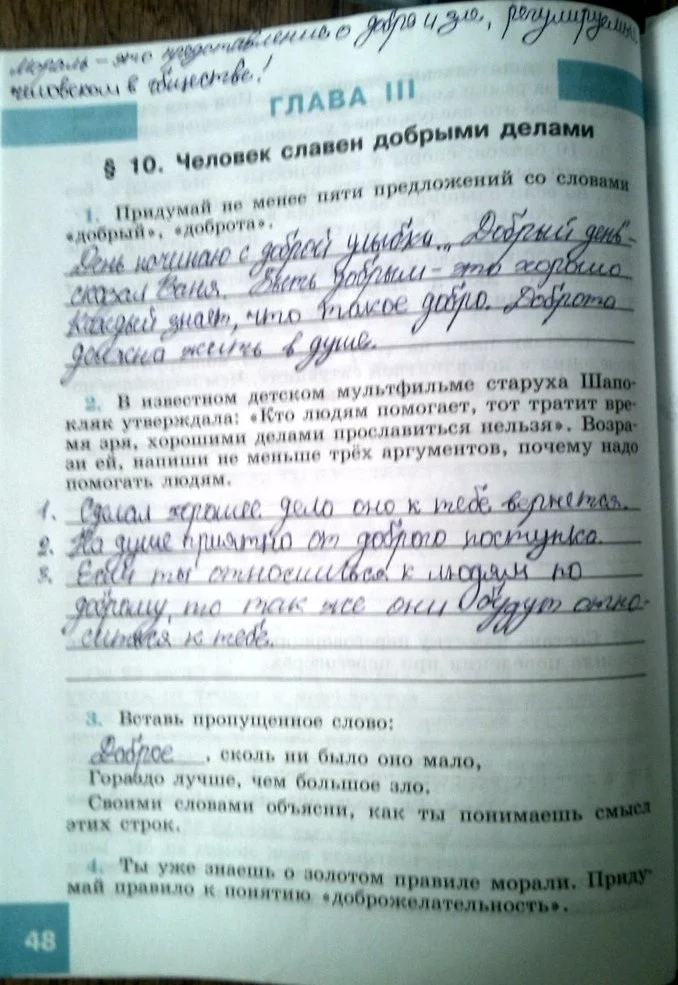 Мораль – это представление о добре и зле, регулируемые
человеком в обществе!
ГЛАВА III
§ 10. Человек славен добрыми делами
1. Придумай не менее пяти предложений со словами
«добрый», «доброта».
День начинаю с доброй улыбки. „Добрый день"-
сказал Ваня. Быть добрым – это хорошо
Каждый знает, что такое добро. Доброта
должна жить в душе.
2. В известном детском мультфильме старуха Шапо-
кляк утверждала: «Кто людям помогает, тот тратит вре-
мя зря, хорошими делами прославиться нельзя». Возра-
зи ей, напиши не меньше трёх аргументов, почему надо
помогать людям.
1. Сделал хорошее дело оно к тебе вернется.
2. На душе приятно от доброго поступка.
3. Если ты относишься к людям по
доброму, то так же они будут отно-
сится к тебе.
3. Вставь пропущенное слово:
Доброе, сколь ни было оно мало,
Гораздо лучше, чем большое зло.
Своими словами объясни, как ты понимаешь смысл
этих строк.
4. Ты уже знаешь о золотом правиле морали. Приду-
май правило к понятию «доброжелательность».
48